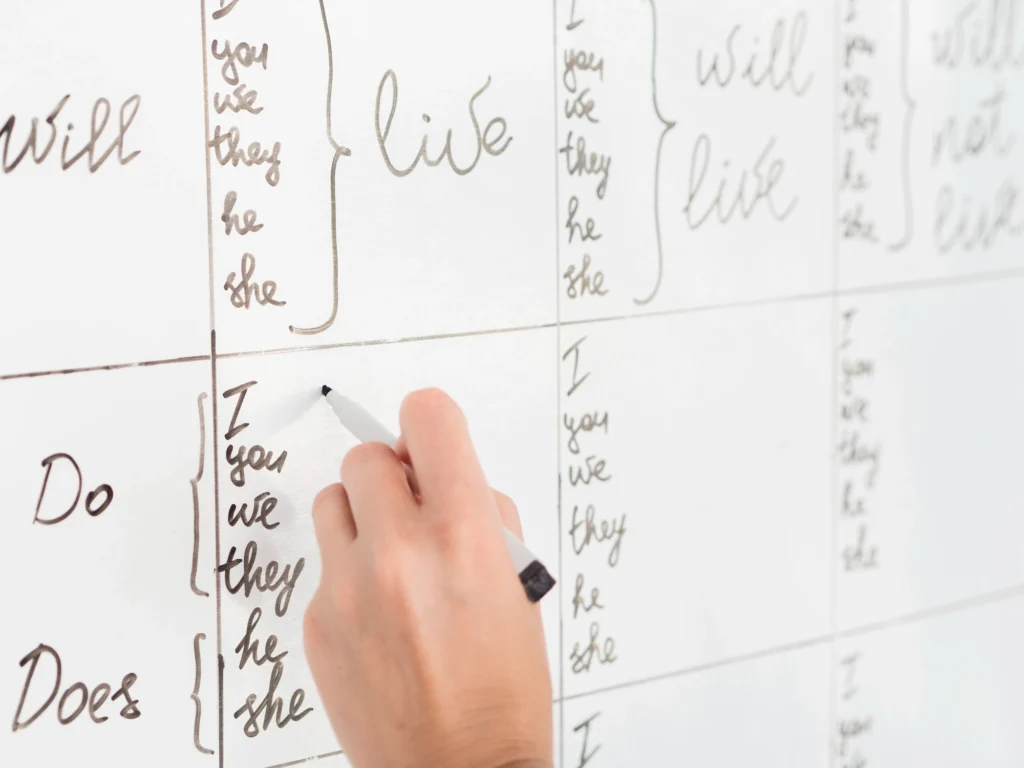 Will
I
you
we
they
he
she
live
I
you
we
they
he
she
will
live
I
you
we
they
he
she
will
not
live
Do
Does
I
you
we
they
he
she
I
you
we
they
he
she
I
you
we
they
he
she
I
I
you
we